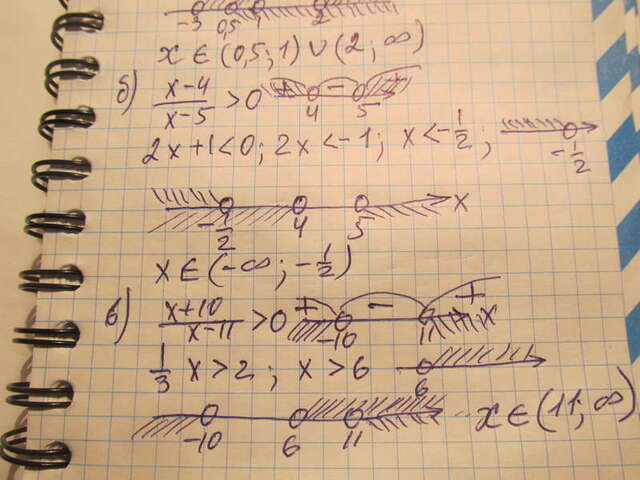 -3 0,5 1 2
x ∈ (0,5; 1) ∪ (2; ∞)
б) x-4/x-5 > 0 + - + 4 5
2x+1<0; 2x<-1; x<-1/2; -1/2
-1/2 4 5 x
x ∈ (-∞; -1/2)
в) x+10/x-11 > 0 + - + -10 11 x
1/3 x > 2; x > 6 6
-10 6 11 x ∈ (11; ∞)